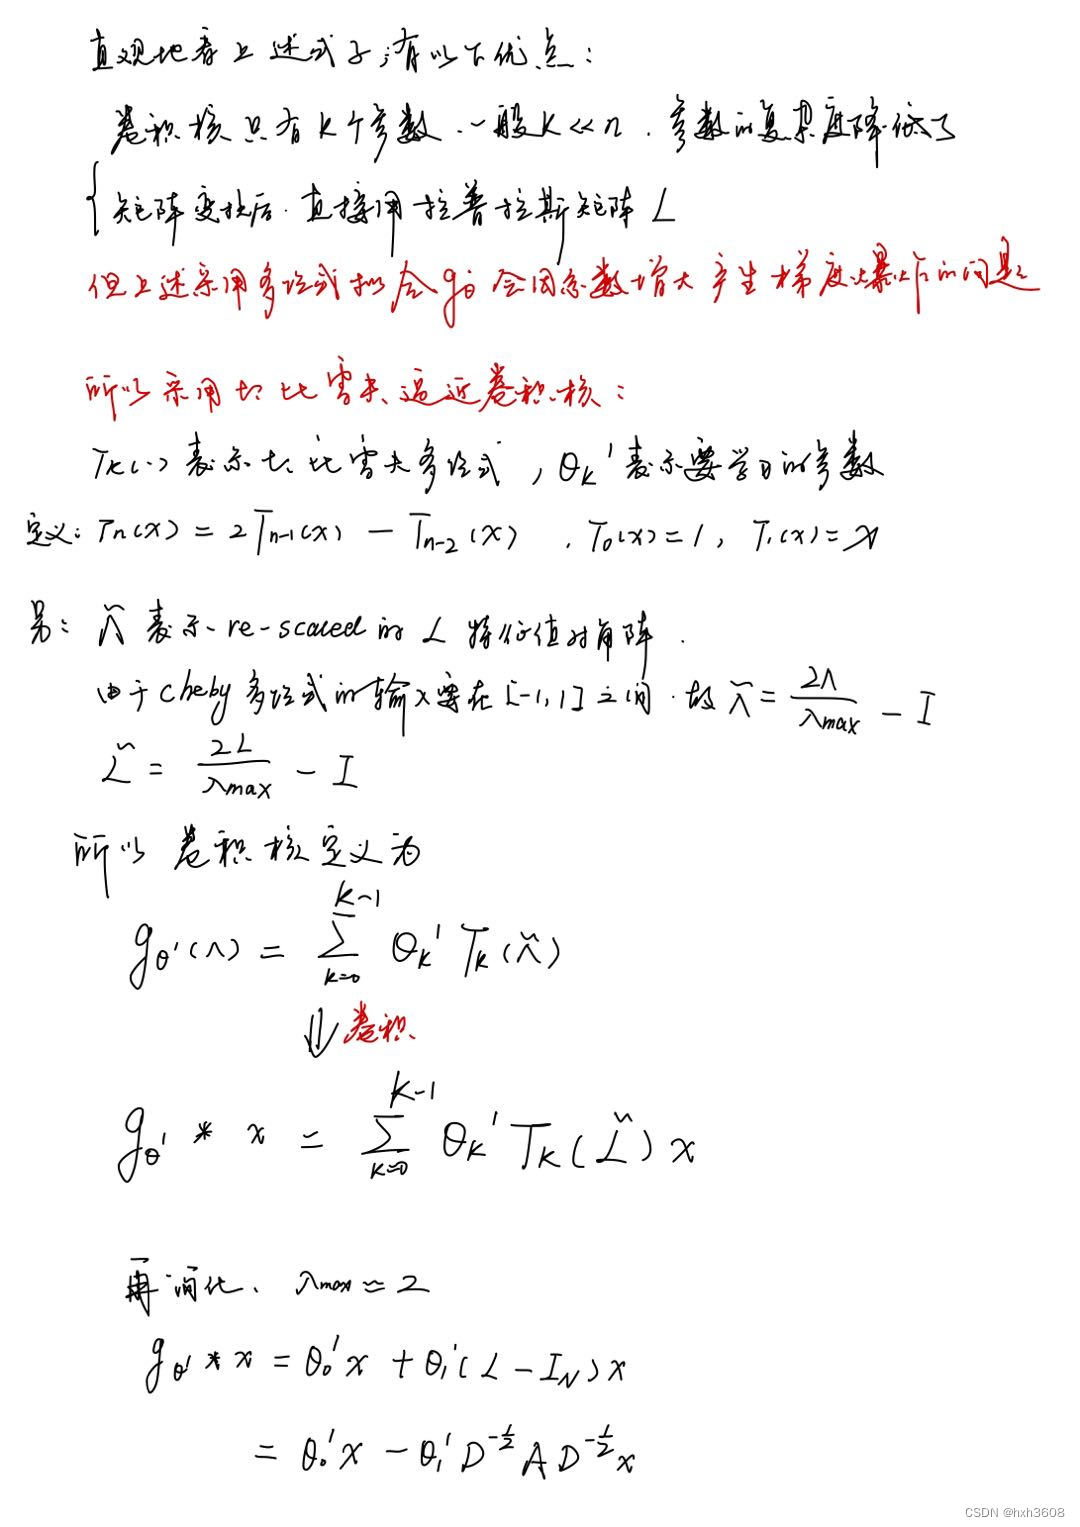 直观地看上述式子,有以下优点:
卷积核只有K个参数.一般K<<n.参数的复杂度降低了
矩阵变换后.直接用拉普拉斯矩阵L
但上述采用多项式拟合gθ会因系数增大产生梯度爆炸的问题
所以采用切比雪夫逼近卷积核:
Tk(·)表示切比雪夫多项式,θk'表示要学习的参数
定义:Tn(x) = 2Tn-1(x) - Tn-2(x) . T0(x)=1, T1(x)=x
另: Λ̃ 表示re-scaled的L特征值对角阵.
由于cheby多项式的输入要在[-1,1]之间.故 Λ̃ = 2Λ/λmax - I
L̃ = 2L/λmax - I
所以卷积核定义为
gθ'(Λ) = Σ_{k=0}^{K-1} θk' Tk(Λ̃)
⇓ 卷积
gθ' * x = Σ_{k=0}^{K-1} θk' Tk(L̃)x
再简化. λmax ≃ 2
gθ' * x = θ0'x + θ1'(L - IN)x
= θ0'x - θ1'D^{-1/2}AD^{-1/2}x
CSDN @hxh3608